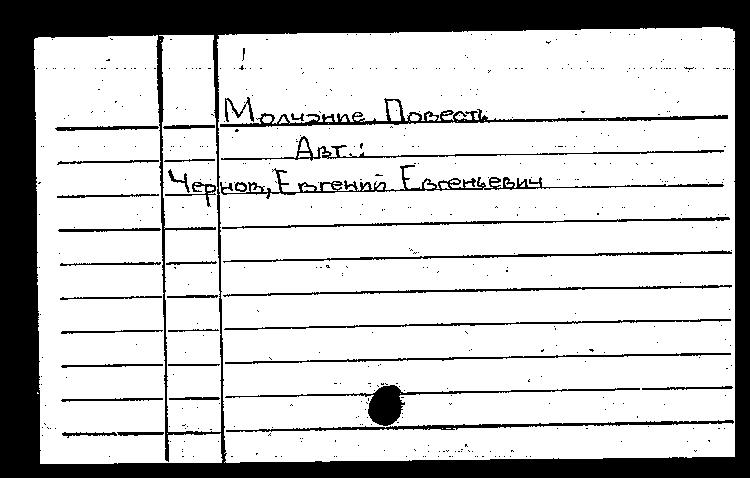 Молчание. Повесть
Авт.:
Чернов, Евгений Евгеньевич